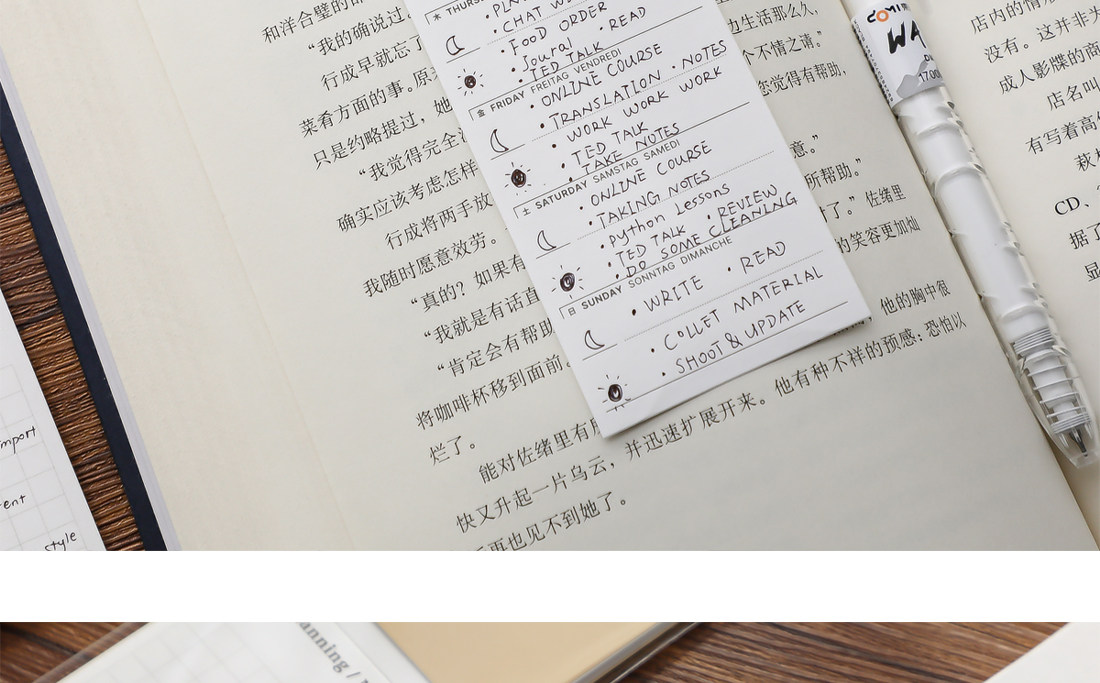 和洋合璧的
"我的确说过
行成早就忘了
菜肴方面的事。原
只是约略提过，她
"我觉得完全
确实应该考虑怎样
行成将两手放
我随时愿意效劳。
"真的？如果有
"我就是有话直
"肯定会有帮助
将咖啡杯移到面前。
烂了。
能对佐绪里有
快又升起一片乌云，并迅速扩展开来。他有种不祥的预感：恐怕以
再也见不到她了。
边生活那么久，
个不情之请。"
您觉得有帮助，
意。"
所帮助。"
了。"佐绪里
的笑容更加灿
他的胸中很
木 THURS
• CHAT W
• FOOD ORDER
• Joural • READ
• TED TALK
金 FRIDAY FREITAG VENDREDI
• ONLINE COURSE
• TRANSLATION • NOTES
• WORK WORK WORK
• TED TALK
• TAKE NOTES
土 SATURDAY SAMSTAG SAMEDI
• ONLINE COURSE
• TAKING NOTES
• python Lessons
• TED TALK • REVIEW
• DO SOME CLEANING
日 SUNDAY SONNTAG DIMANCHE
• WRITE • READ
• COLLET MATERIAL
• SHOOT & UPDATE
WA
1700
店内的情
没有。这并非
成人影牒的商
店名叫
有写着高
CD、
据了
显
mport
ent
style
anning /